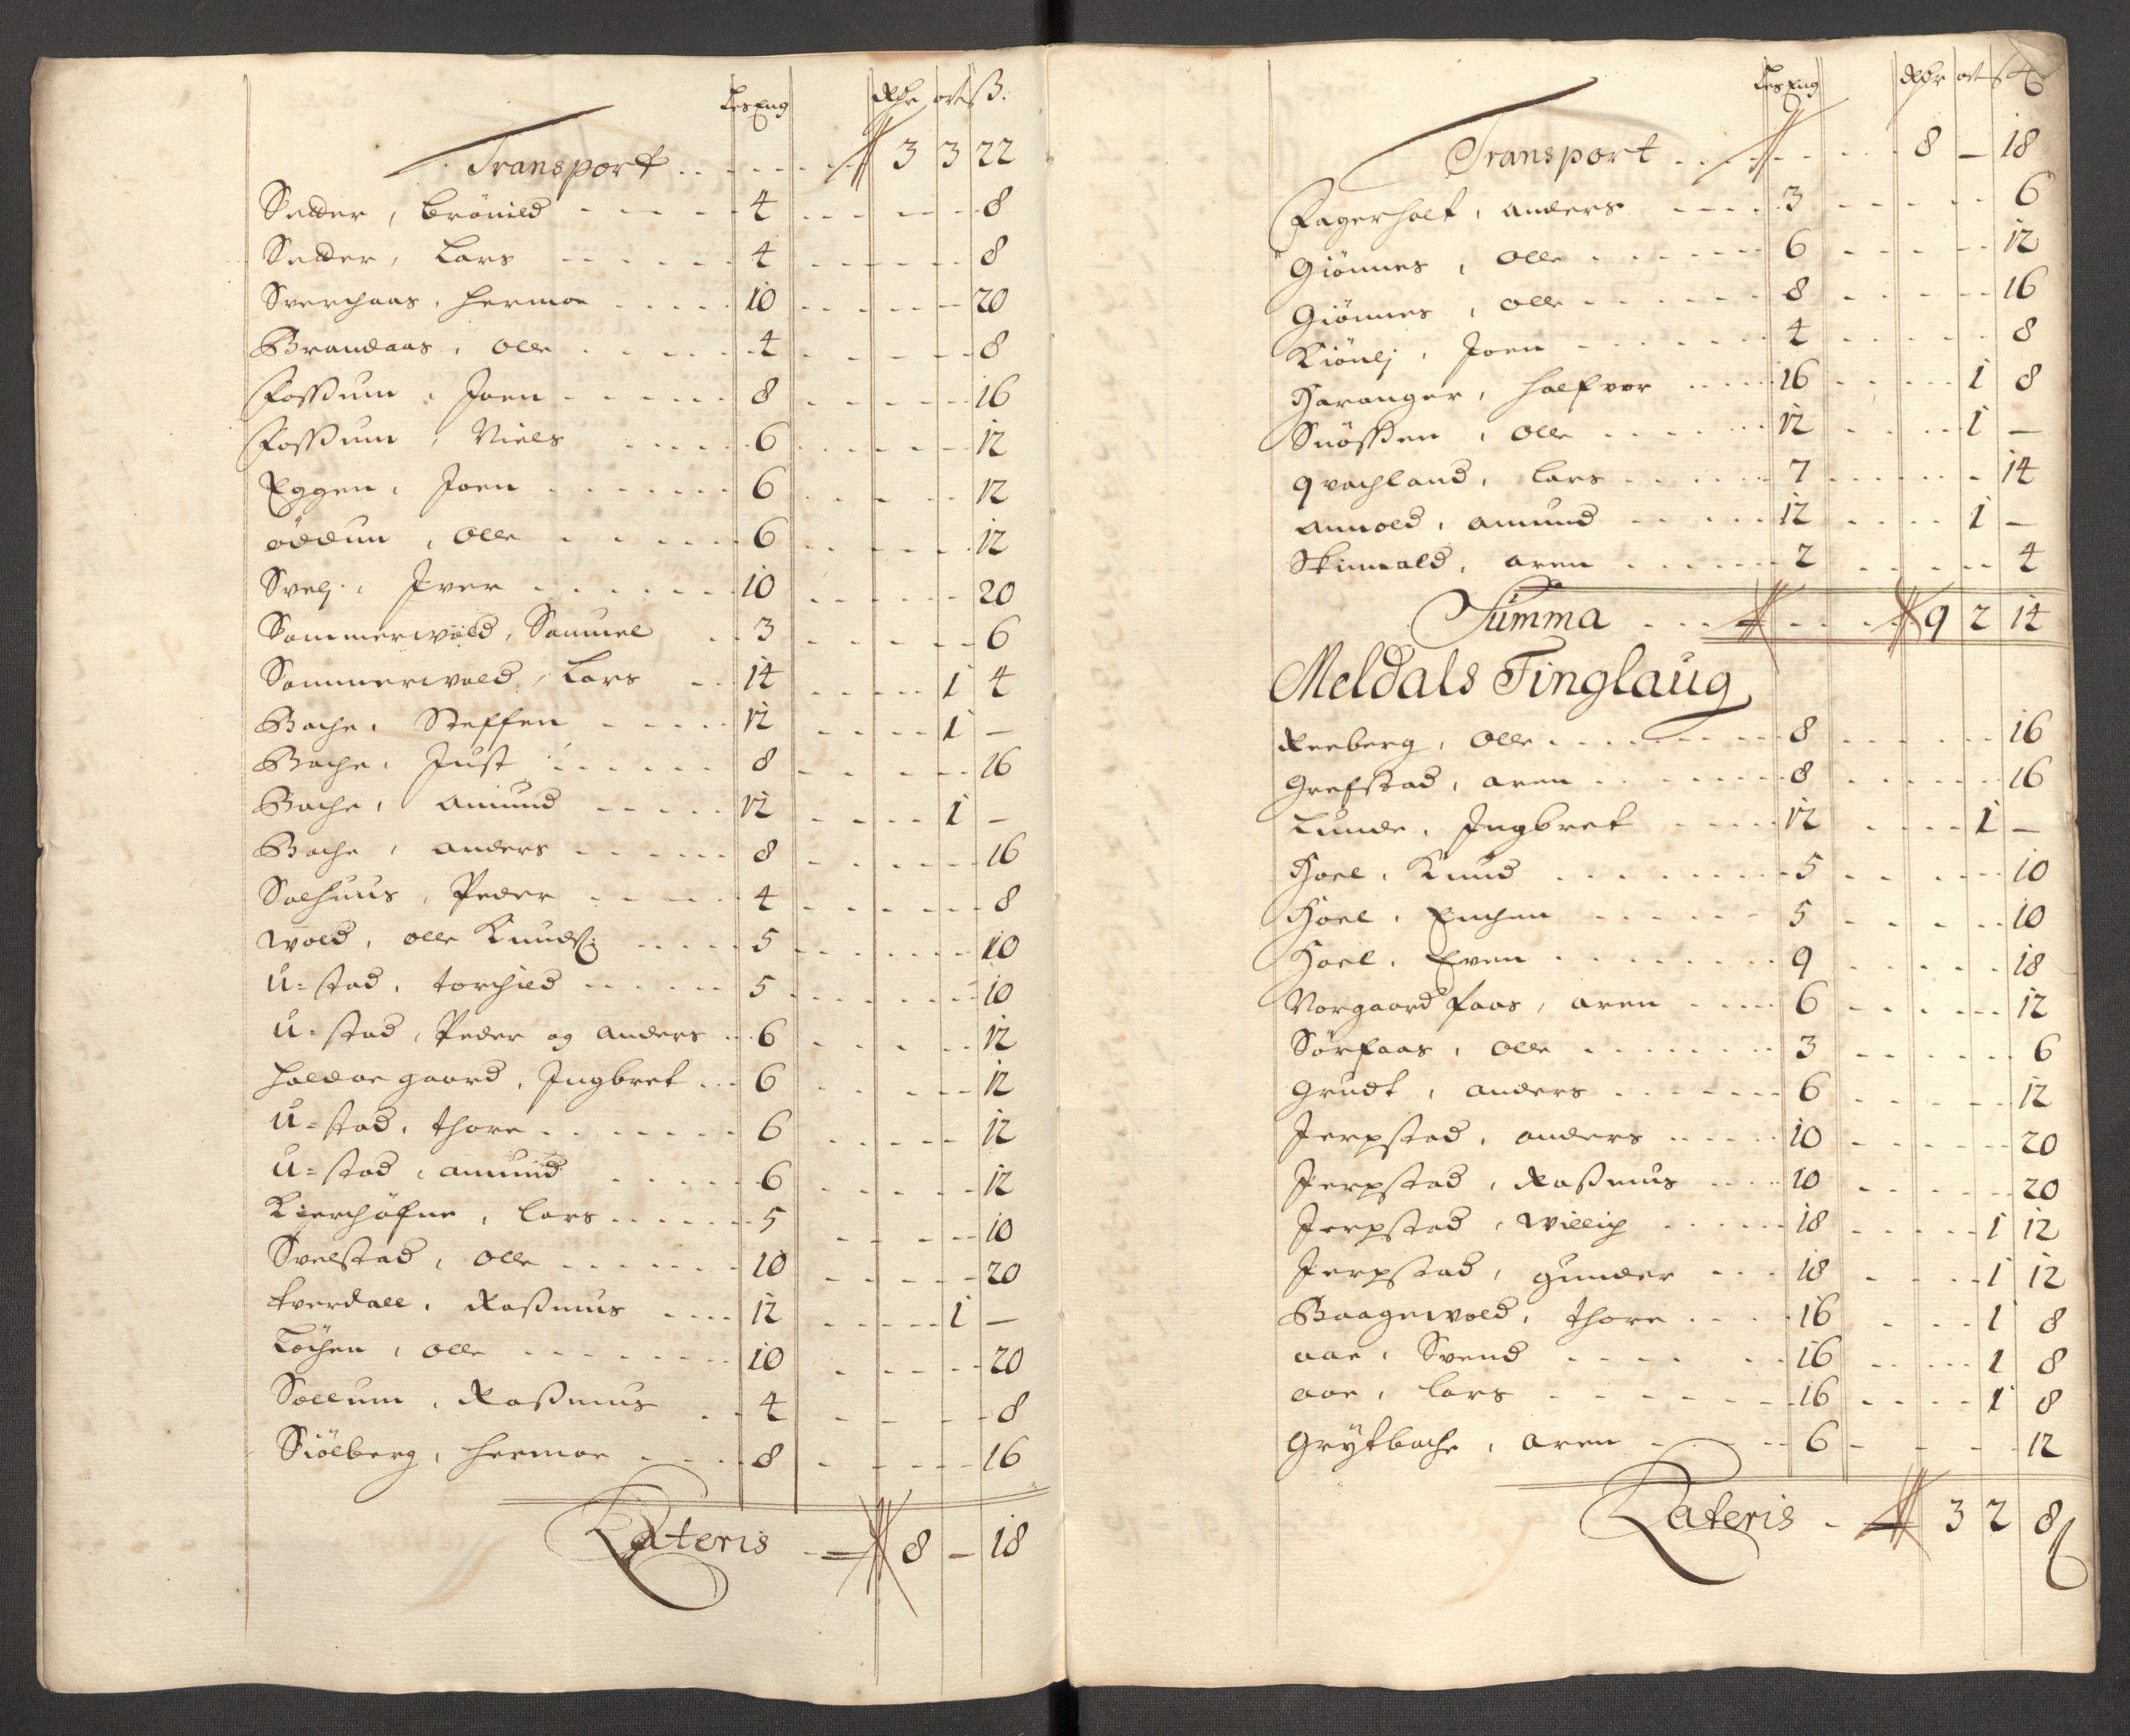 Les Eng Rdr ort ß:
Transport 3 3 22
Selder, Brönild 4 8
Selder, Lars 4 8
Sverchaas, hermoe 10 20
Brandaas, Olle 4 8
Foßum, Joen 8 16
Foßum, Niels 6 12
Eggen, Joen 6 12
öddun, Olle 6 12
Svelj, Iver 10 20
Sommerwold, Samuel 3 6
Sommerwold, Lars 14 1 4
Bache, Steffen 12 1 –
Bache, Just 8 16
Bache, Amund 12 1 –
Bache, anders 8 16
Solhuus, Peder 4 8
Wold, Olle Knuds: 5 10
U=stad, torchild 5 10
U=stad, Peder og Anders 6 12
holdoe gaard, Ingbret 6 12
U=stad, thore 6 12
U=stad, Amund 6 12
Kierchöfne, lars 5 10
Svelstad, Olle 10 20
tverdall, Raßmus 12 1 –
Löchen, Olle 10 20
Sollum, Raßmus 4 8
Siölberg, hermoe 8 16
Lateris 8 – 18
Les Eng Rdr ort ß
Transport 8 – 18
Fagerholt, anders 3 6
Giönnes, Olle 6 12
Giönnes, Olle 8 16
Kiönlj, Joen 4 8
Haranger, halfvor 16 1 8
Snößen, Olle 12 1 –
qvachland, lars 7 14
Annold, Amund 12 1 –
Skinnald, aren 2 4
Summa 9 2 14
Meldals Tinglaug
Reeberg, Olle 8 16
Grefstad, aren 8 16
Lunde, Ingbret 12 1 –
Hoel, Knud 5 10
Hoel, Enchen 5 10
Hoel, Even 9 18
Norgaard faas, aren 6 12
Sörfaas, Olle 3 6
Grudt, anders 6 12
Jerpstad, anders 10 20
Jerpstad, Raßmus 10 20
Jerpstad, Willig 18 1 12
Jerpstad, gunder 18 1 12
Baagewold, thore 16 1 8
aae, Svend 16 1 8
aae, lars 16 1 8
Grytbache, aren 6 12
Lateris 3 2 8